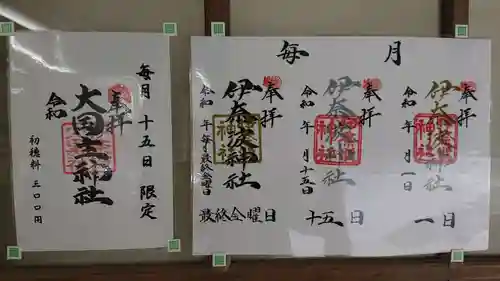 毎月
奉拝
伊奈波神社
神社
令和 年 月 一日
一日
奉拝
伊奈波神社
神社
令和 年 月 十五日
十五日
奉拝
伊奈波神社
神社
令和 年 毎月最終金曜日
最終金曜日
毎月 十五日 限定
奉拝
大国主神社
令和
初穂料 三〇〇円